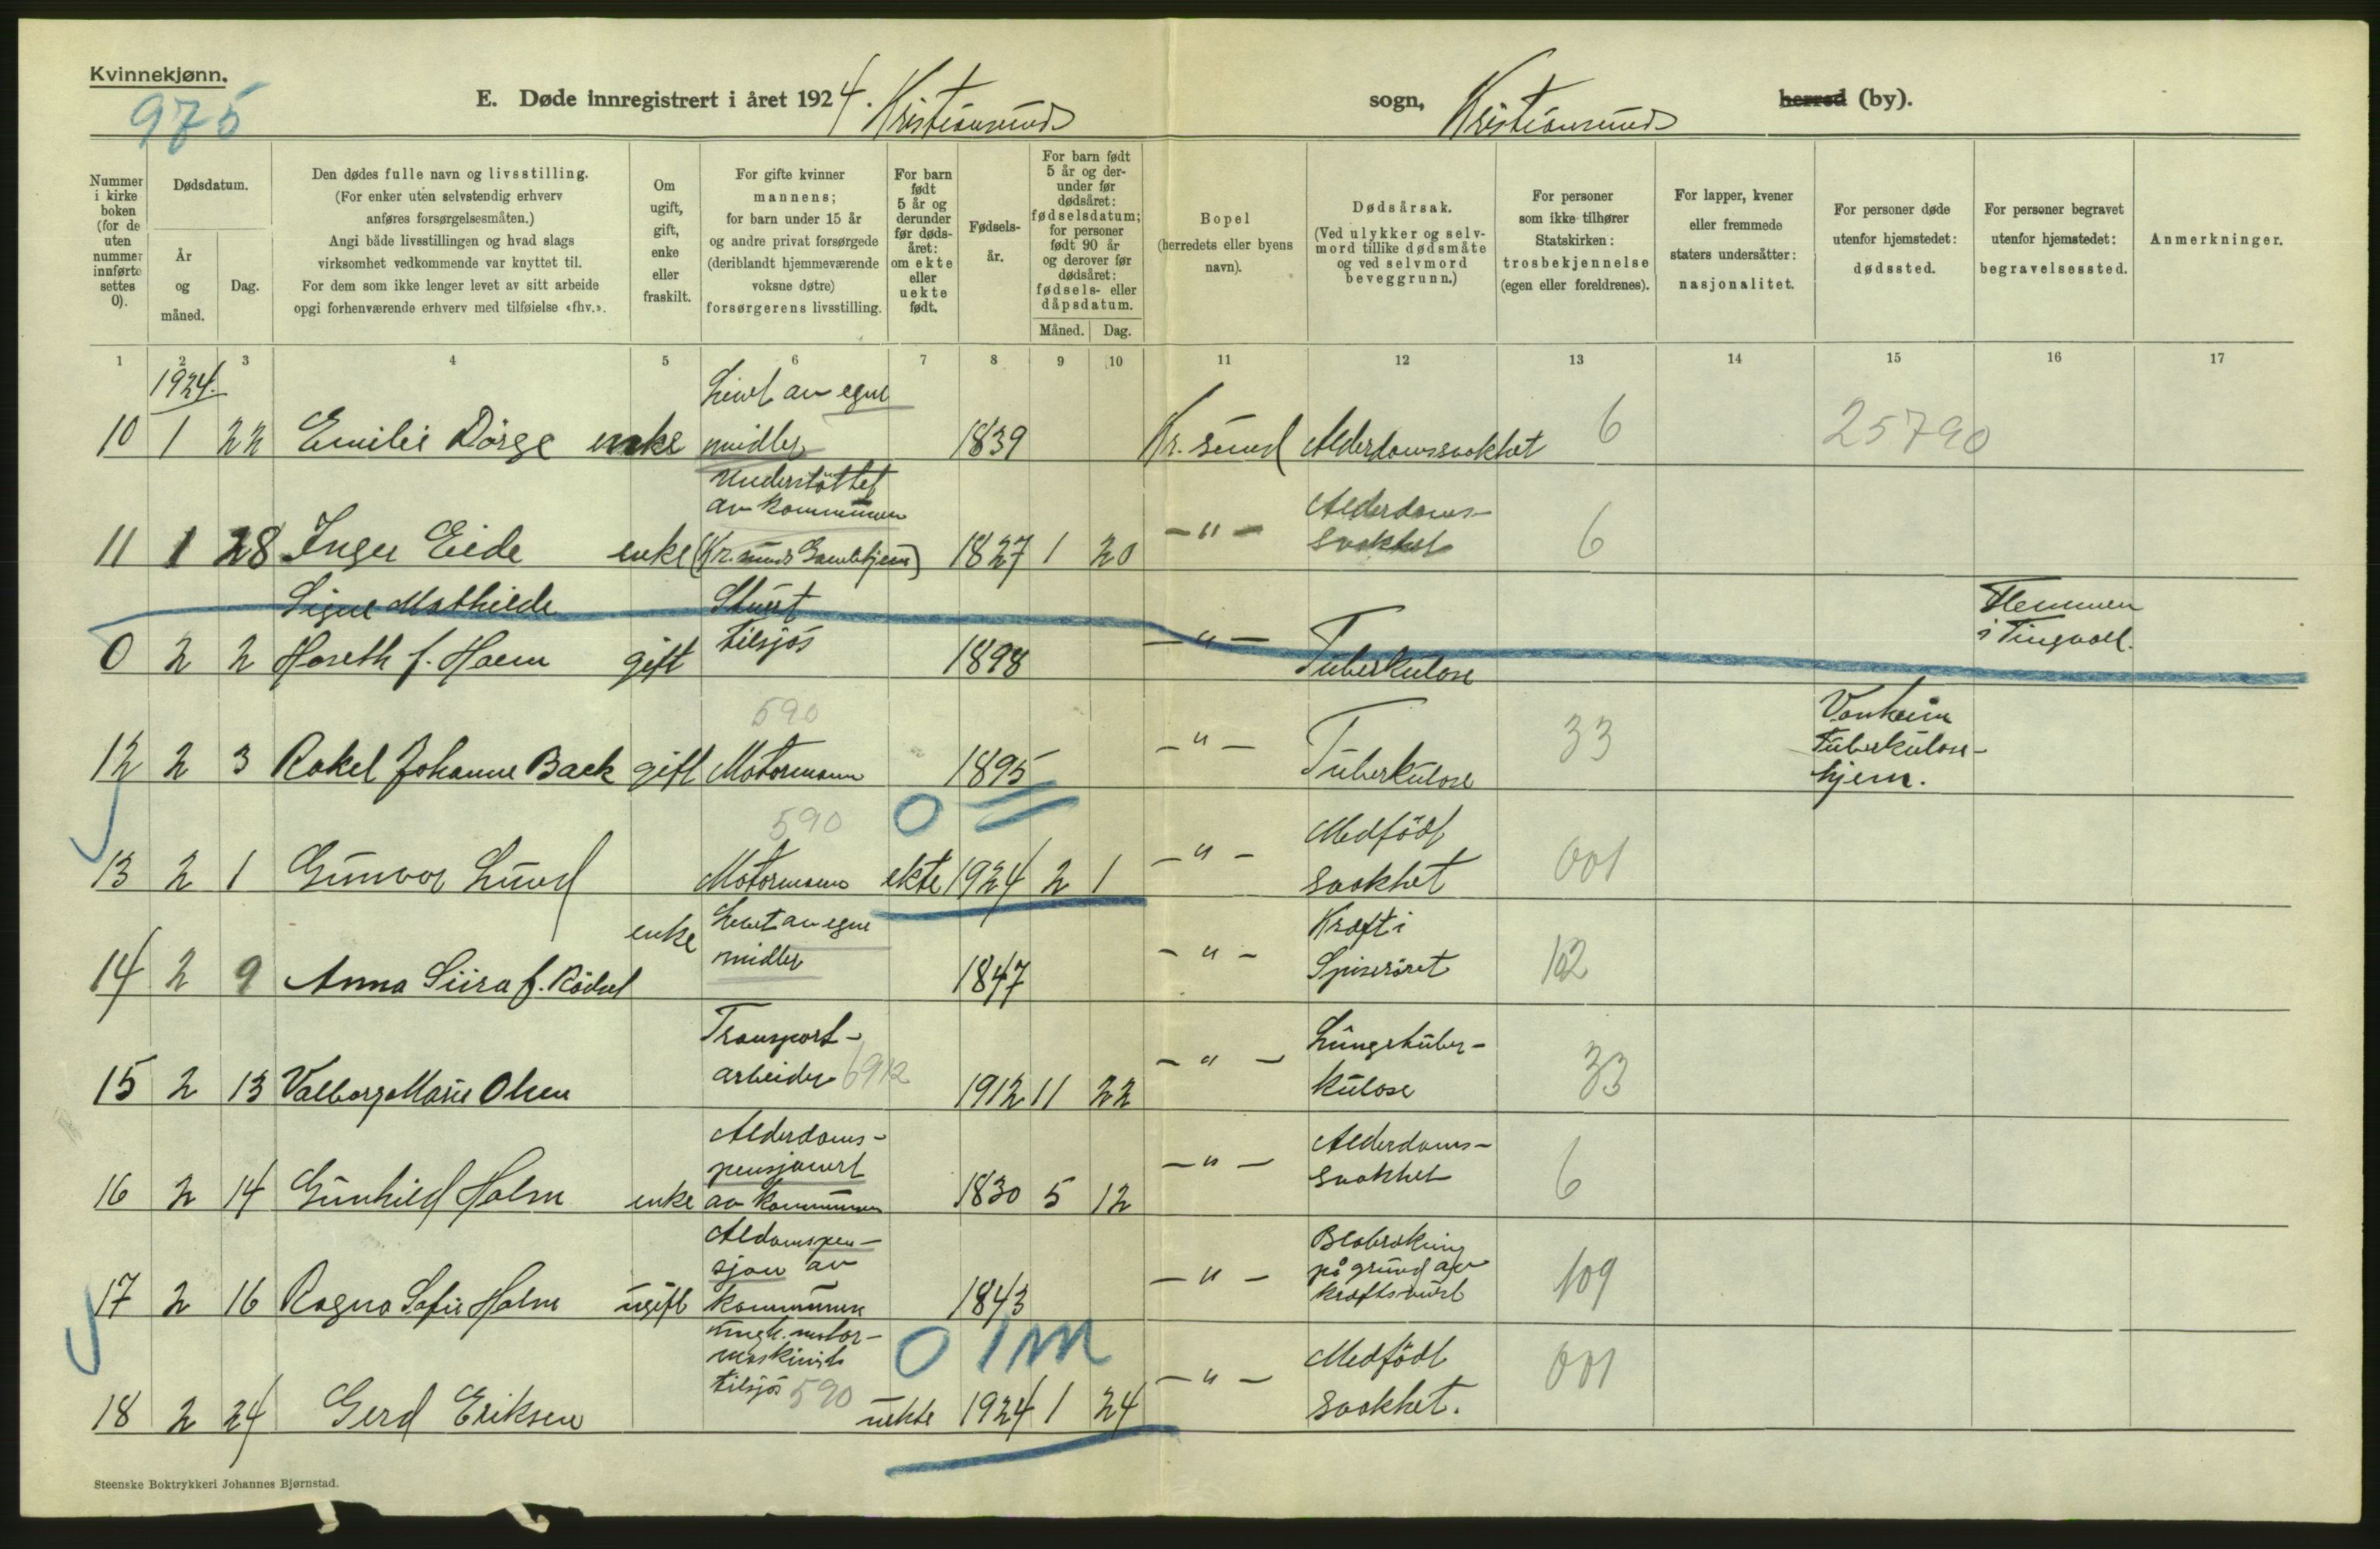 Kvinnekjønn.
975
E. Døde innregistrert i året 1924. Kristiansund sogn, Kristiansund herred (by).
Nummer i kirke boken (for de uten nummer innførte settes 0).
Dødsdatum.
År og måned.
Dag.
Den dødes fulle navn og livsstilling.
(For enker uten selvstendig erhverv
anføres forsørgelsesmåten.)
Angi både livsstillingen og hvad slags
virksomhet vedkommende var knyttet til.
For dem som ikke lenger levet av sitt arbeide
opgi forhenværende erhverv med tilføielse «fhv.».
Om ugift, gift, enke eller fraskilt.
For gifte kvinner
mannens;
for barn under 15 år
og andre privat forsørgede
(deriblandt hjemmeværende
voksne døtre)
forsørgerens livsstilling.
For barn født 5 år og derunder før dødsåret: om ekte eller uekte født.
Fødselsår.
For barn født 5 år og derunder før dødsåret: fødselsdatum; for personer født 90 år og derover før dødsåret: fødsels- eller dåpsdatum.
Måned. Dag.
Bopel
(herredets eller byens
navn).
Dødsårsak.
(Ved ulykker og selvmord tillike dødsmåte
og ved selvmord
beveggrunn.)
For personer
som ikke tilhører
Statskirken:
trosbekjennelse
(egen eller foreldrenes).
For lapper, kvener
eller fremmede
staters undersåtter:
nasjonalitet.
For personer døde
utenfor hjemstedet:
dødssted.
For personer begravet
utenfor hjemstedet:
begravelsessted.
Anmerkninger.
1 2 3 4 5 6 7 8 9 10 11 12 13 14 15 16 17
1924.
10 1 22 Emilie Dörge enke Levet av egne midler 1839 Kr.sund Alderdomssvakhet 6 25790
11 1 28 Inger Eide enke Understöttet av kommunen (Kr.sunds Gamlehjem) 1827 1 20 -"- Alderdoms-svakhet 6
0 2 2 Signe Mathilde Hoseth f. Hoem gift Stuert tilsjös 1898 -"- Tuberkulose Flemmen i Tingvoll.
12 2 3 Rakel Johanne Back gift 590 Motormann 1895 -"- Tuberkulose 33 Vonheim Tuberkulose-hjem.
13 2 1 Gunvor Lund 590 Motormann 0 ekte 1924 2 1 -"- Medfödt svakhet 001
14 2 9 Anna Siira f. Rödsel enke Levet av egne midler 1847 -"- Kraft i Spiseröret 102
15 2 13 Valborg Marie Olsen Transport-arbeider 6912 1912 11 22 -"- Lungetuber-kulose 33
16 2 14 Gunhild Holm enke Alderdoms-pensjonert av kommunen 1830 5 12 -"- Alderdoms-svakhet 6
17 2 16 Ragna Sofie Holm ugift Aldomspen-sjon av kommunen 1843 -"- Blobrækning på grund av kræftsvulst 109
18 2 24 Gerd Eriksen ungk. motor-maskinist tilsjös 590 0 1 M uekte 1924 1 24 -"- Medfödt svakhet. 001
Steenske Boktrykkeri Johannes Bjørnstad.